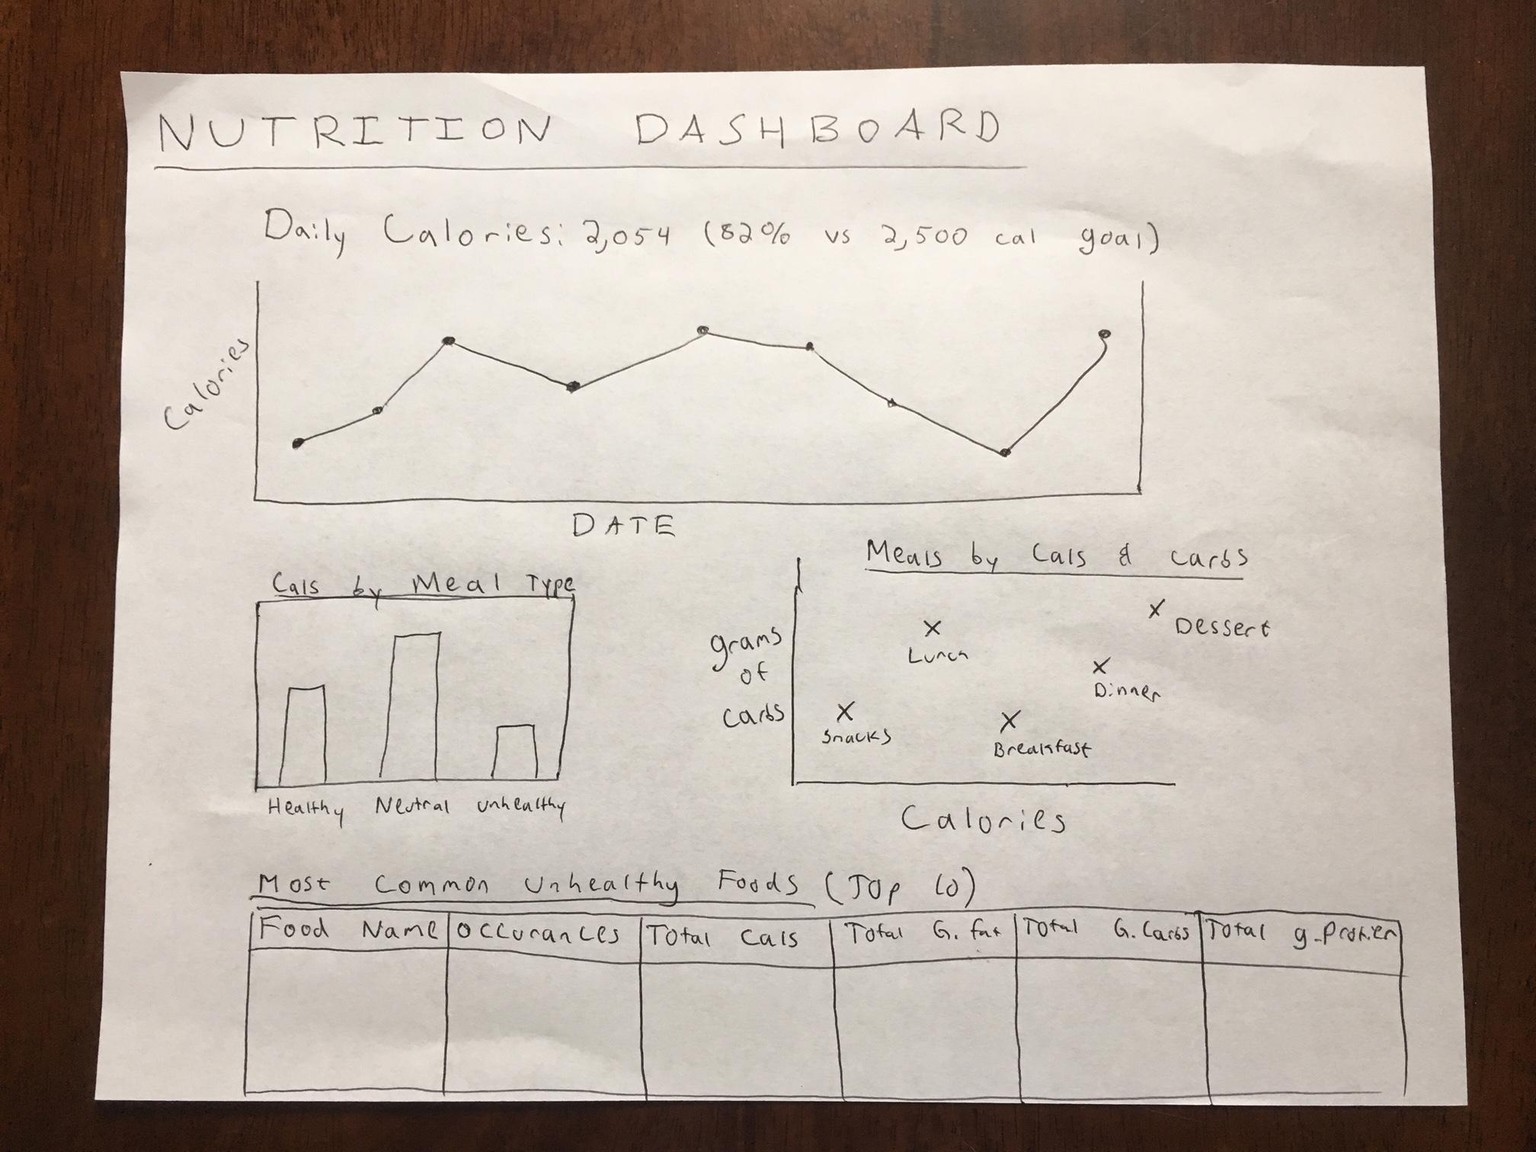 NUTRITION DASHBOARD
Daily Calories: 2,054 (82% vs 2,500 cal goal)
Calories
DATE
Cals by Meal Type
Healthy Neutral unhealthy
Meals by Cals & Carbs
grams
of
carbs
Lunch
Dessert
Dinner
Snacks
Breakfast
Calories
Most Common Unhealthy Foods (Top 10)
Food Name Occurances Total Cals Total G. fat Total G. Carbs Total g. Protien